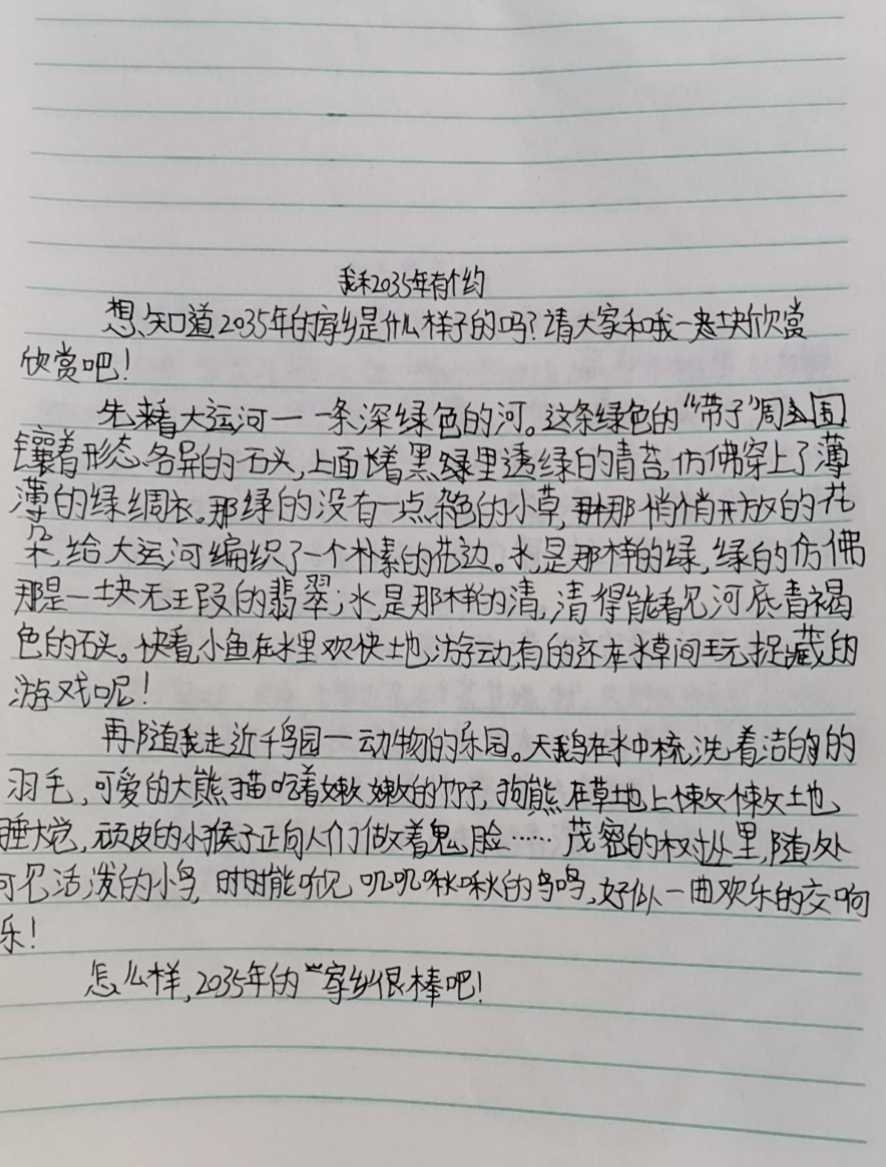 我和2035年有个约
想知道2035年的家乡是什么样子的吗？请大家和我一起去欣赏
欣赏吧！
先来看大运河一一条深绿色的河。这条绿色的“带子”周围
镶着形态各异的石头，上面长着黑绿里透绿的青苔，仿佛穿上了薄
薄的绿绸衣。那绿的没有一点杂色的小草，那悄悄开放的花
朵，给大运河编织了一个朴素的花边。水，是那样的绿，绿的仿佛
那是一块无瑕的翡翠；水，是那样的清，清得能看见河底青褐
色的石头。快看，小鱼在水里欢快地游动，有的还在水草间玩捉藏的
游戏呢！
再随我走近千鸟园一动物的乐园。天鹅在水中梳洗着洁的的
羽毛，可爱的大熊猫吃着嫩嫩的竹子，狗熊在草地上懒懒地
睡大觉，顽皮的小猴子正向人们做着鬼脸……茂密的树丛里，随处
可见活泼的小鸟，时时能听见叽叽啾啾的鸟鸣，好似一曲欢乐的交响
乐！
怎么样，2035年的家乡很棒吧！